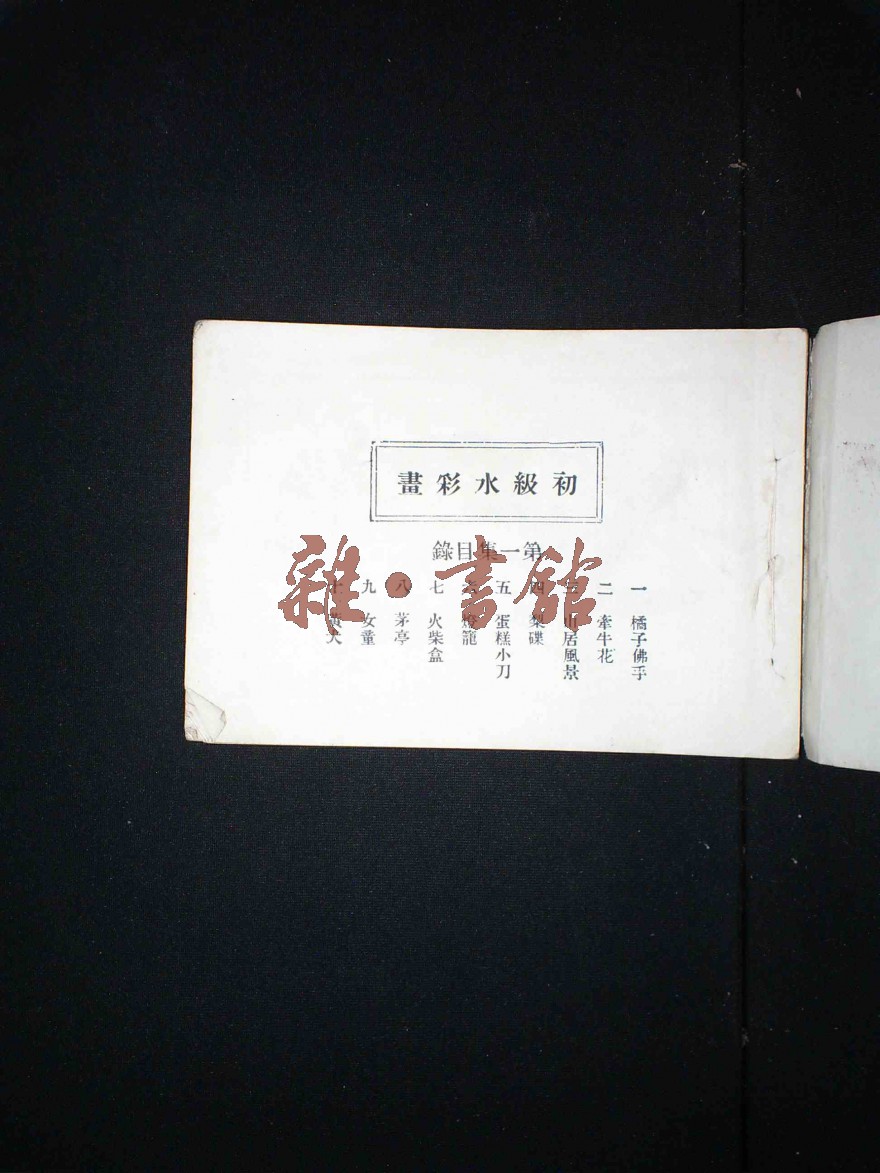 初級水彩畫
第一集目錄
一 橘子佛手
二 牽牛花
三 山居風景
四 梨碟
五 蛋糕小刀
六 燈籠
七 火柴盒
八 茅亭
九 女童
十 黃犬
雜·書館